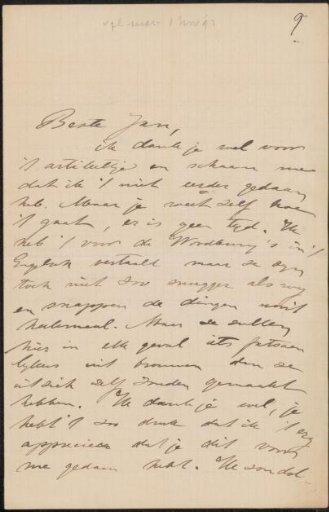 9
Beste Jan,
ik dank je wel voor
't artikeltje en schaam me
dat ik 't niet eerder gedaan
heb. Maar je weet zelf hoe
't gaat, er is geen tyd. Ik
heb 't voor de Woodbury's in 't
Engelsch vertaald maar ze zyn
toch niet zoo snugger als wy
en snappen de dingen nooit
helemaal. Maar ze zullen
hier in elk geval iets fatsoen
lykers uit brouwen dan ze
uit zich zelf zouden gemaakt
hebben. Ik dank je wel, je
hebt 't zoo druk dat ik 't erg
apprecieer dat je dit voor
me gedaan hebt. Ik